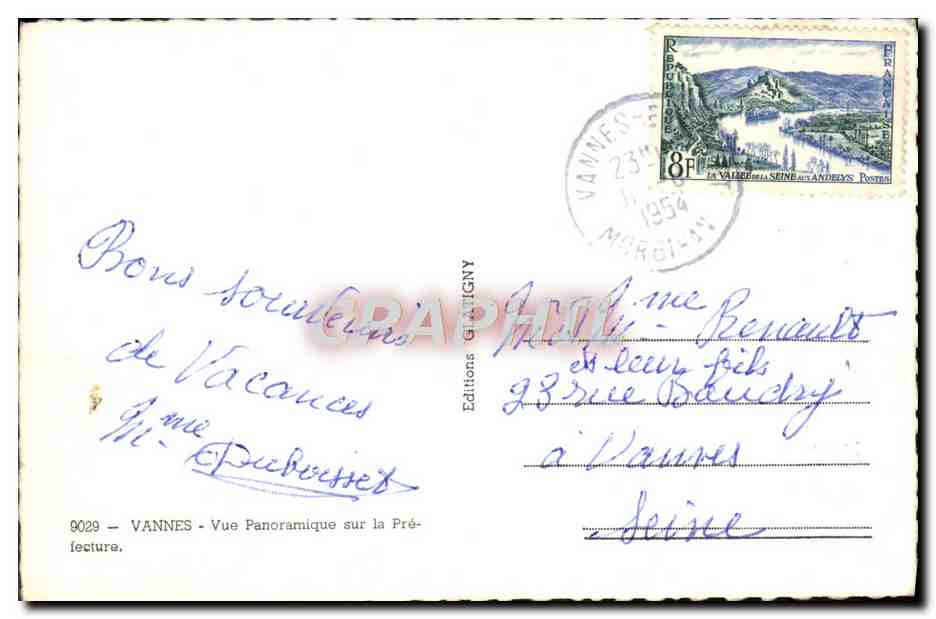 RÉPUBLIQUE FRANÇAISE
8F
LA VALLÉE DE LA SEINE AUX ANDELYS POSTES
VANNES-
23H
1954
MORBIHAN
Bons souvenirs
de Vacances
Mme Duboisset
Editions GLATIGNY
CPAPHIL
M. Mme Renault
et leur fils
23 rue Baudry
à Vanves
Seine
9029 — VANNES - Vue Panoramique sur la Pré-
fecture.